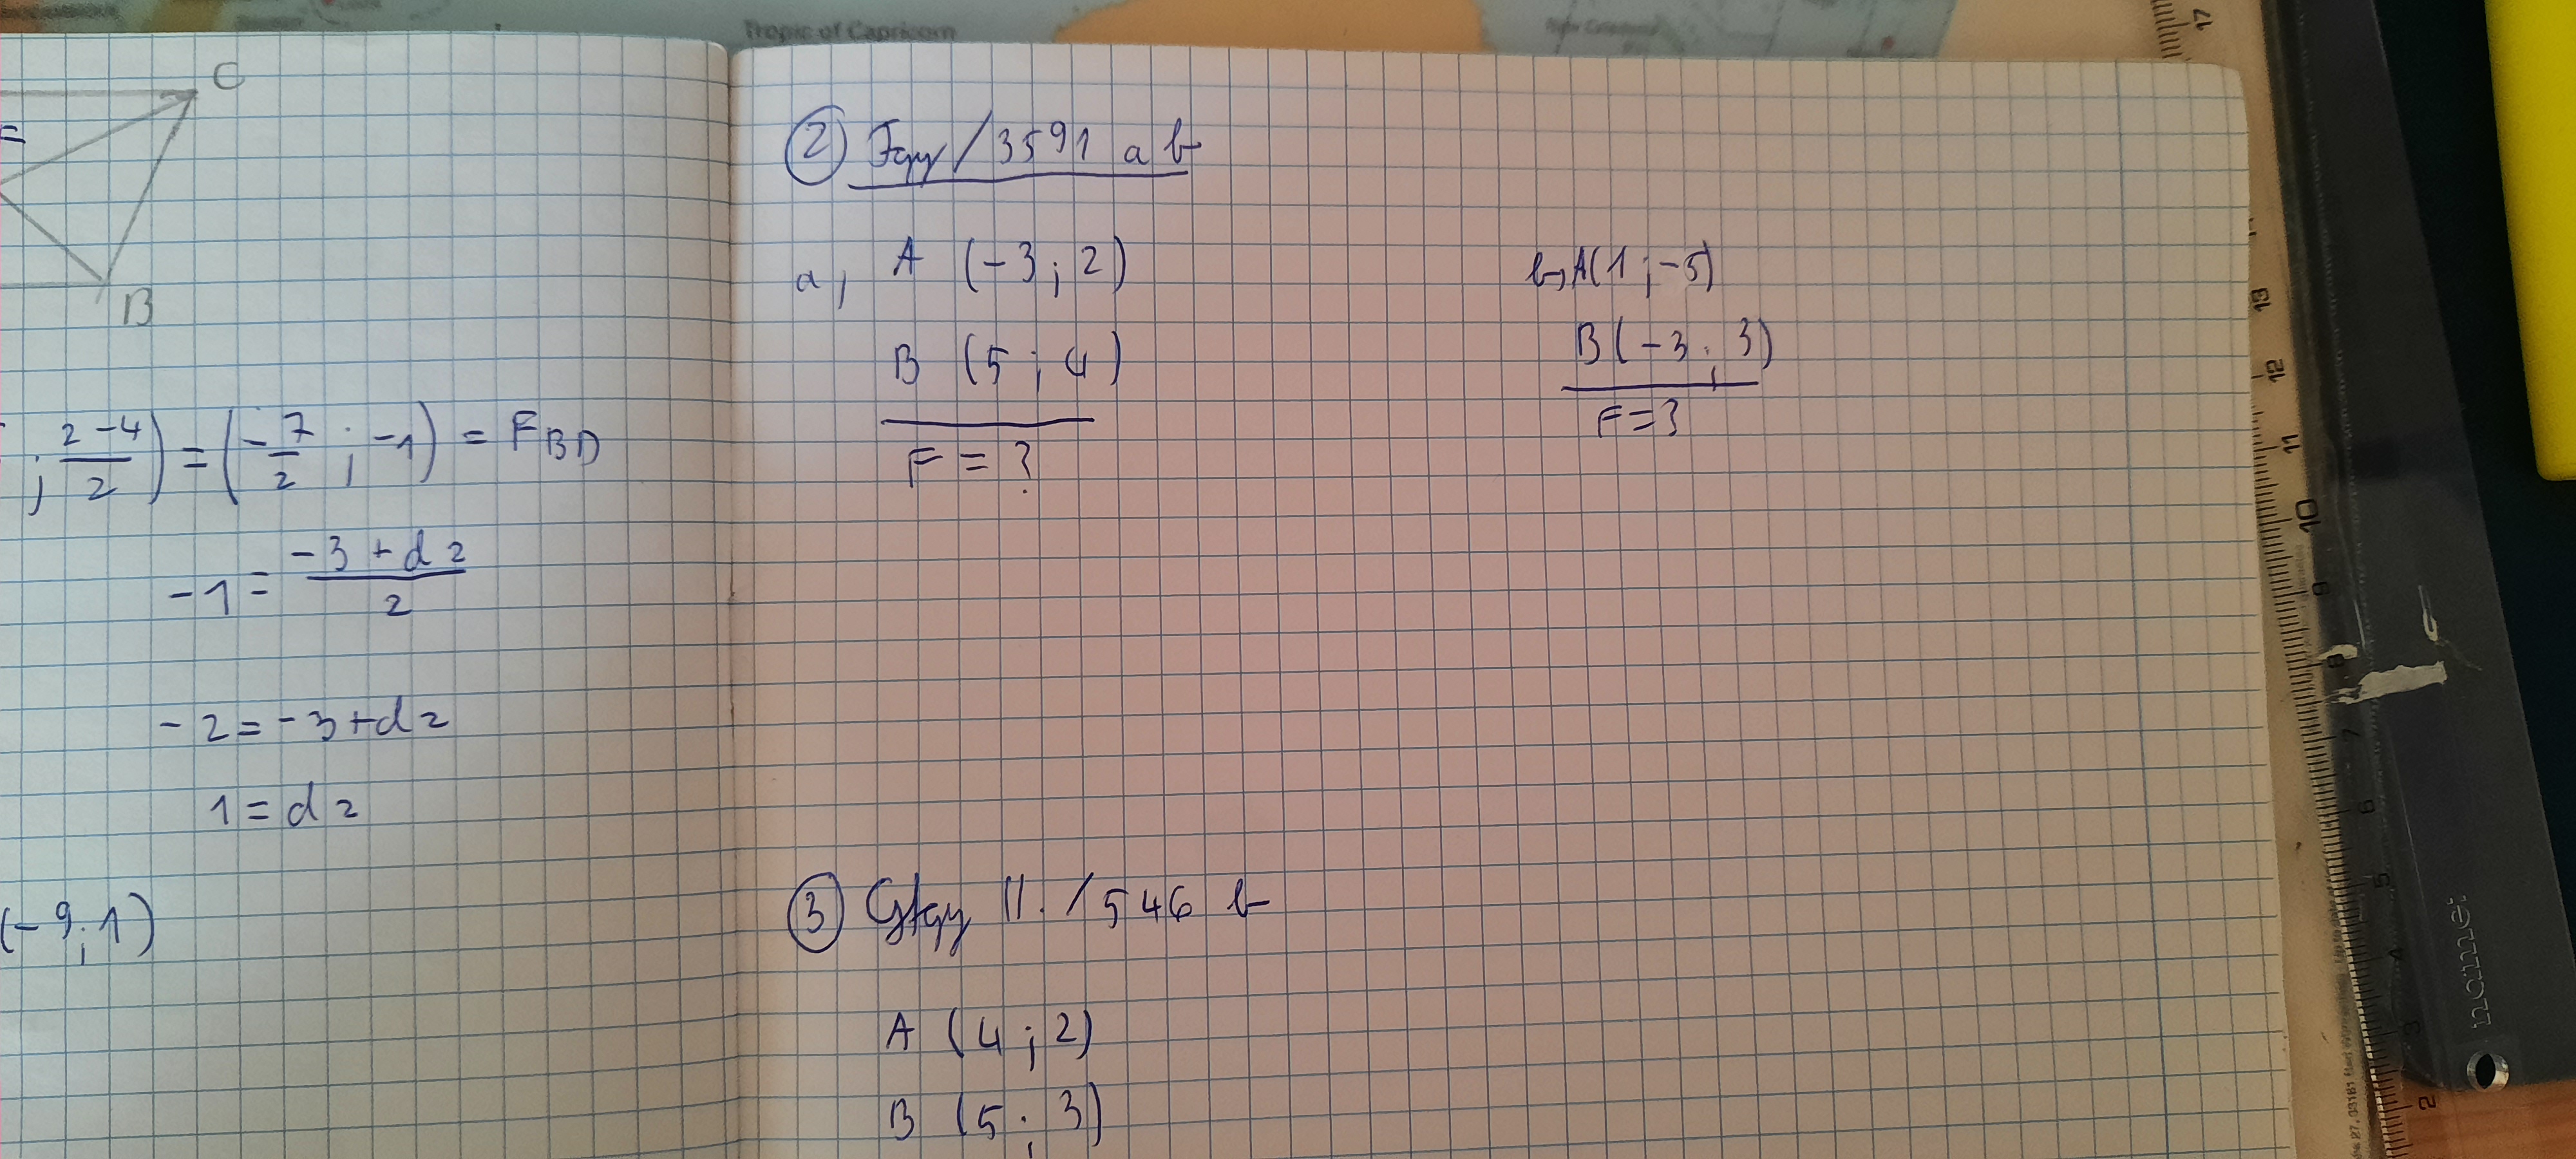 Tropic of Capricorn
C
=
B
; 2-4/2) = (-7/2 ; -1) = FBD
-1 = -3 + d2/2
-2 = -3 + d2
1 = d2
(-9; 1)
② Fgy/3591 a b
a, A (-3; 2)
B (5; 4)
F = ?
b, A(1; -5)
B(-3; 3)
F = ?
③ Gyfgy II. /546 b
A (4; 2)
B (5; 3)
17
13
12
11
10
9
8
7
6
5
4
3
2